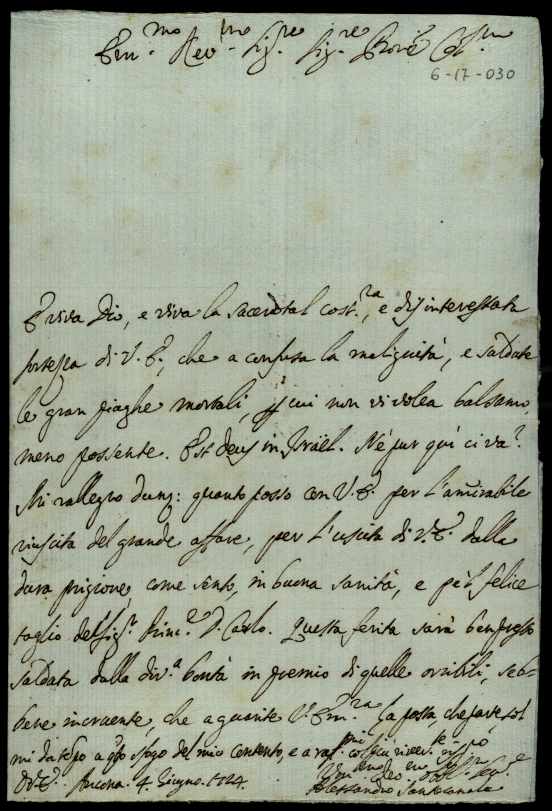 Em.mo Rev.mo Sig.re Sig.re Pro.ne Col.mo
6-17-030
E viva Dio, e viva la sacerdotal cost.za, e disinteressata
fortezza di V. E., che a confusa la malignità, e saldate
le gran piaghe mortali, p cui non vi volea balsamo,
meno possente. Est deus in Israël. Nè pur qui ci va
Mi rallegro dunq: quanto posso con V. E. per l'amirabile
riuscita del grande affare, per l'uscita di V. E. dalla
dura prigione, come sento, in buona sanità, e pel felice
taglio del Sig.r Princ.e D. Carlo. Questa ferita sarà ben presto
saldata dalla div.a bontà in premio di quelle orribili, seb-
bene incruente, che à guarite V. Em.za La posta, che parte, sol
mi dà tempo a q.to sfogo del mio contento, e a
Di V. E. Ancona. 4. Giugno. 1724.
Alessandro